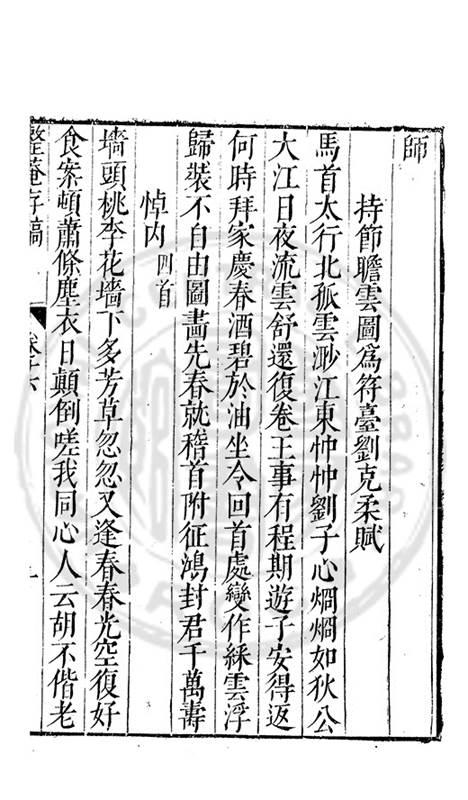 師
持節瞻雲圖爲符臺劉克柔賦
馬首太行北孤雲渺江東忡忡劉子心烱烱如狄公
大江日夜流雲舒還復卷王事有程期遊子安得返
何時拜家慶春酒碧於油坐令回首處變作綵雲浮
歸裝不自由圖畵先春就稽首附征鴻封君千萬壽
悼内四首
墻頭桃李花墻下多芳草忽忽又逢春春光空復好
食案頓蕭條塵衣日顛倒嗟我同心人云胡不偕老
整菴存稿 卷十六